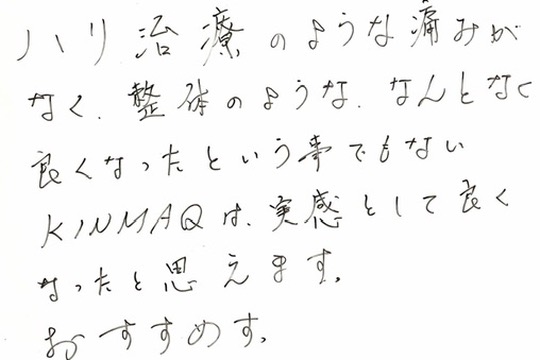 ハリ治療のような痛みが
なく、整体のような、なんとなく
良くなったという事でもない
KINMAQは、実感として良く
なったと思えます。
おすすめす。